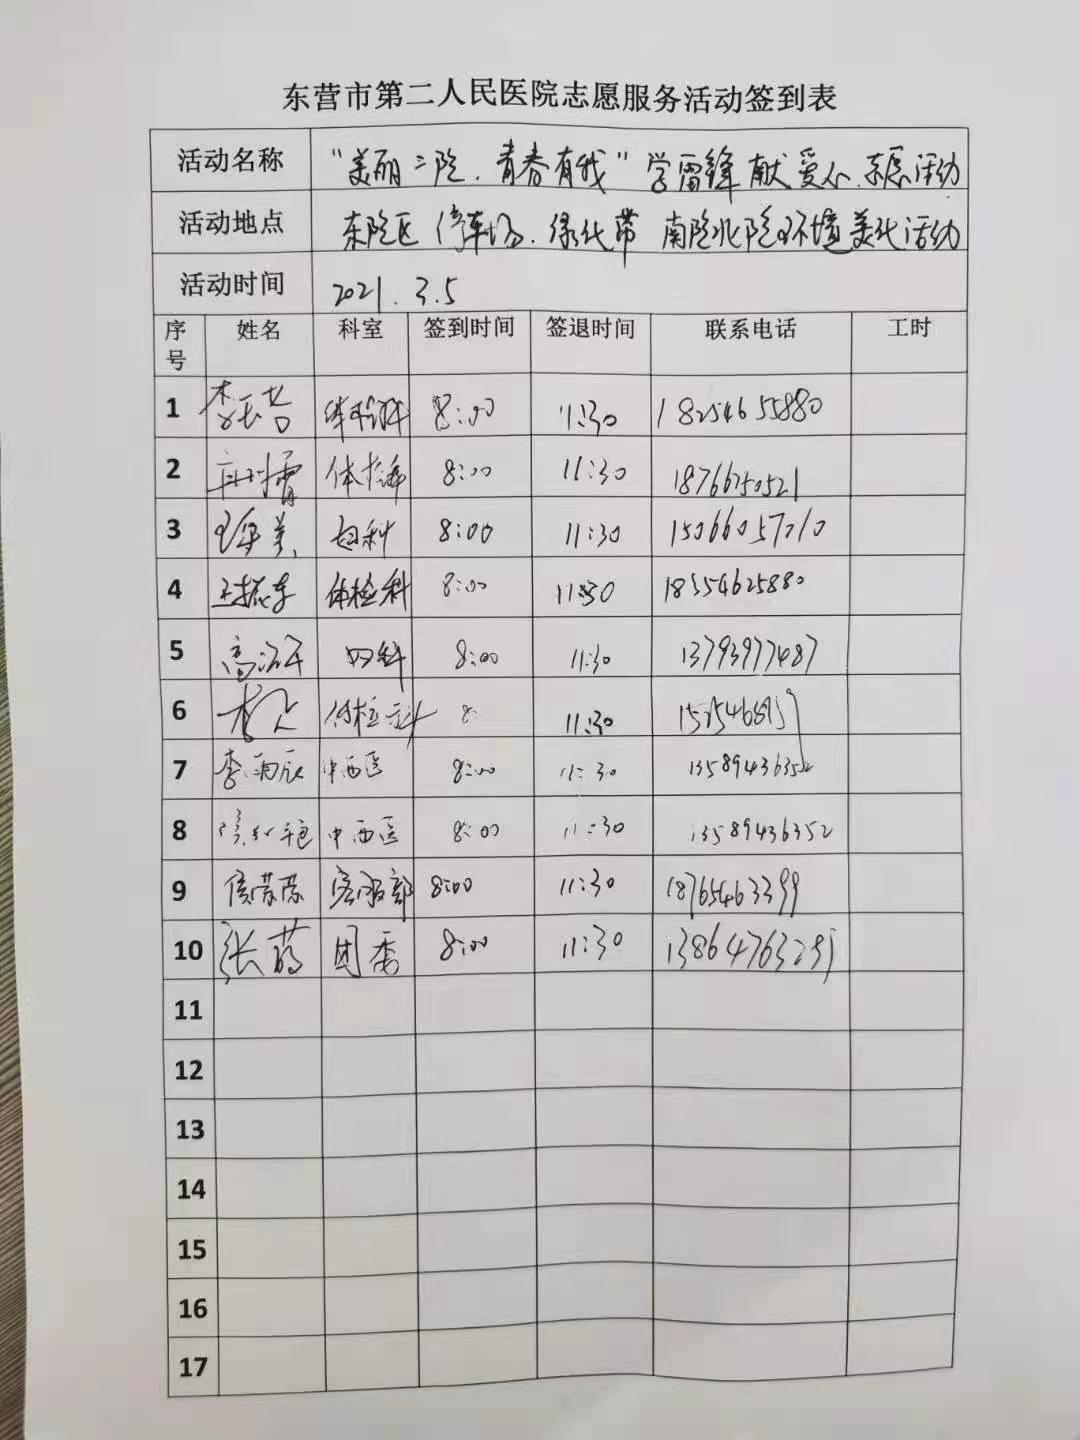 东营市第二人民医院志愿服务活动签到表
活动名称 “美丽二院.青春有我”学雷锋献爱心.志愿活动
活动地点 东院区停车场.绿化带 南院北院环境美化活动
活动时间 2021.3.5
序号 姓名 科室 签到时间 签退时间 联系电话 工时
1 体检科 8:00 11:30 18254655880
2 体检科 8:00 11:30 18766750521
3 妇科 8:00 11:30 15066057010
4 王振东 体检科 8:00 11:30 18354625880
5 8:00 11:30 13793977487
6 体检科 8: 11:30
7 李雨辰 中西医 8:00 11:30 13589436352
8 中西医 8:00 11:30 13589436352
9 客服部 8:00 11:30 18765463399
10 张 团委 8:00 11:30
11
12
13
14
15
16
17